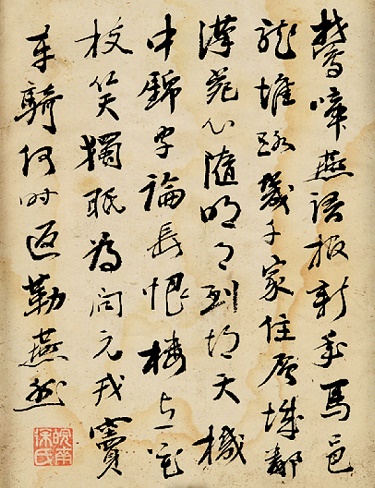 鶯啼燕語報新年馬邑
龍堆路幾千家住層城鄰
漢苑心隨明月到胡天機
中錦字論長恨樓上花
枝笑獨眠為問元戎竇
車騎何时返勒燕然
皖南